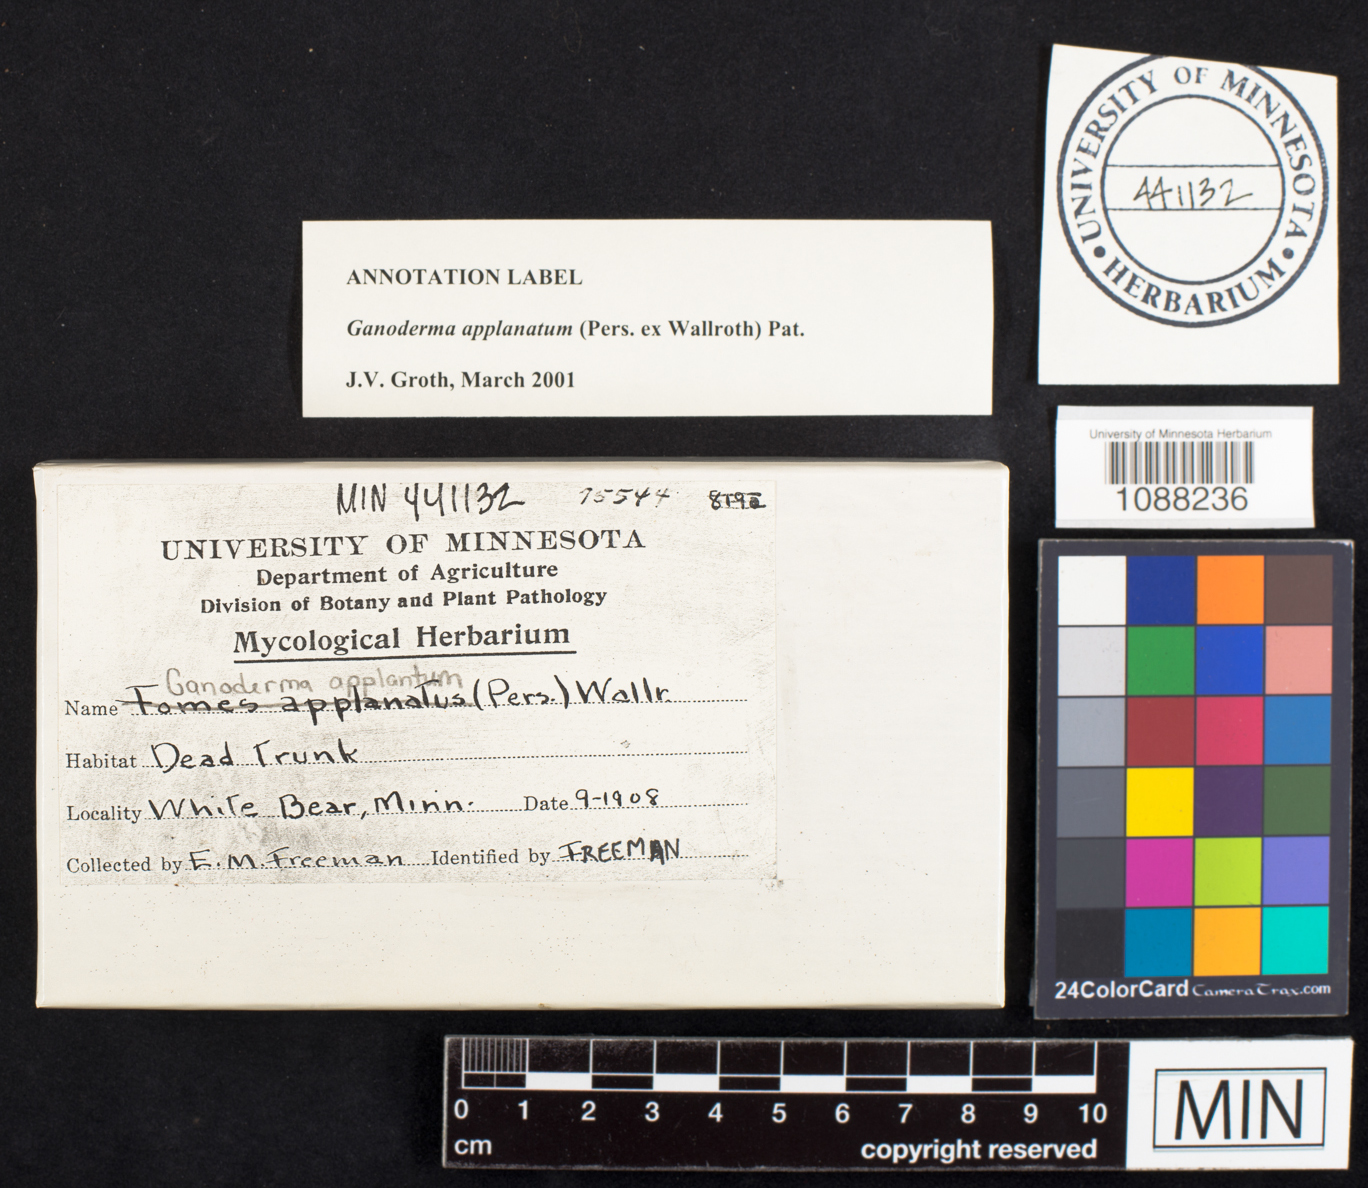 UNIVERSITY OF MINNESOTA
441132
• HERBARIUM •
ANNOTATION LABEL
Ganoderma applanatum (Pers. ex Wallroth) Pat.
J.V. Groth, March 2001
University of Minnesota Herbarium
1088236
MIN 441132 75544
UNIVERSITY OF MINNESOTA
Department of Agriculture
Division of Botany and Plant Pathology
Mycological Herbarium
Ganoderma applantum
Name Fomes applanatus (Pers.) Wallr.
Habitat Dead Trunk
Locality White Bear, Minn. Date 9-1908
Collected by E. M. Freeman Identified by FREEMAN
24ColorCard CameraTrax.com
0 1 2 3 4 5 6 7 8 9 10
cm copyright reserved
MIN